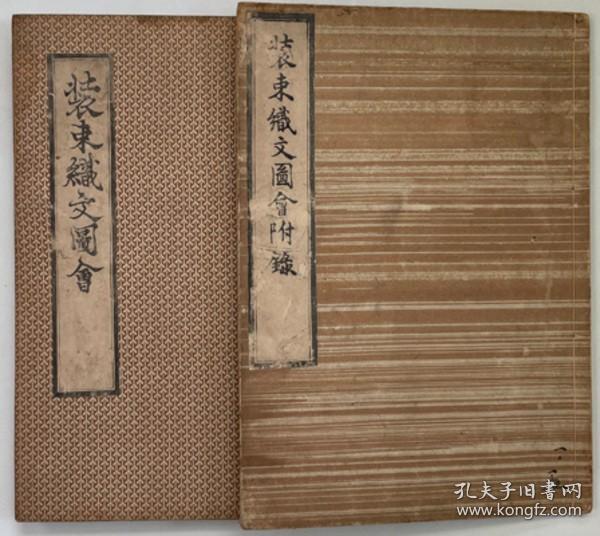 装束織文圖會
装束織文圖會附錄
孔夫子旧书网
www.kongfz.com